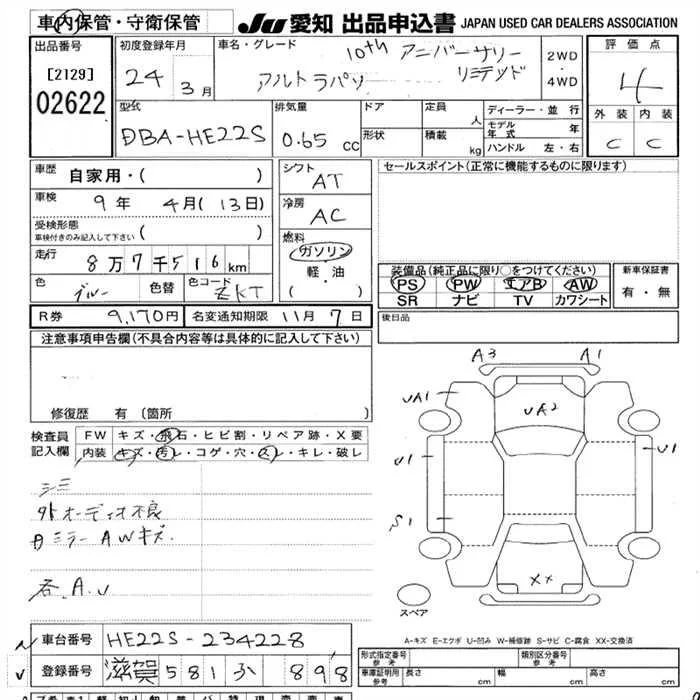 車内保管・守衛保管
JU 愛知 出品申込書 JAPAN USED CAR DEALERS ASSOCIATION
出品番号
[2129]
02622
初度登録年月
24 3月
車名・グレード
10th アニバーサリー
アルトラパン リミテッド
2WD
・
4WD
評価点
4
外装 内装
C C
型式
DBA-HE22S
排気量
0.65 cc
ドア
形状
定員 人
積載 kg
ディーラー・並行
モデル年式 年
ハンドル 左・右
車歴 自家用・( )
車検 9年 4月(13日)
受検形態
車検付きのみ記入して下さい ( )
走行 8万7千516km
色 ブルー 色替 色コード ZKT
シフト
AT
冷房
AC
燃料
ガソリン
軽・油
( )
セールスポイント(正常に機能するものに限ります)
装備品(純正品に限り○をつけてください)
PS PW エアB AW
SR ナビ TV カワシート
新車保証書
有・無
R券 9,170円 名変通知期限 11月7日
後日品
注意事項申告欄(不具合内容等は具体的に記入して下さい)
修復歴 有(箇所
検査員
記入欄
FW キズ・飛石・ヒビ割・リペア跡・X要
内装 キズ・汚レ・コゲ・穴・スレ・キレ・破レ
シミ
外オーディオ不良
ミラーAWキズ
各.A.U
A3 A1
UA1
UA2
U1 U1
S1
XX
スペア
A-キズ E-エクボ U-凹み W-補修跡 S-サビ C-腐食 XX-交換済
車台番号 HE22S-234228
登録番号 滋賀 581 ふ 898
形式指定番号
参考
類別区分番号
参考
車庫証明用
参考
長さ cm 幅 cm 高さ cm